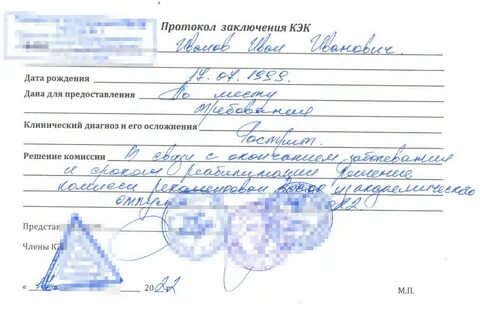 Протокол заключения КЭК
Иванов Иван Иванович.
Дата рождения 17.07.1999.
Дана для предоставления По месту
требования
Клинический диагноз и его осложнения Гастрит.
Решение комиссии В связи с окончанием заболевания
и сроком реабилитации решение
комиссии академического
Представ
Члены К
« 2022 г.
М.П.